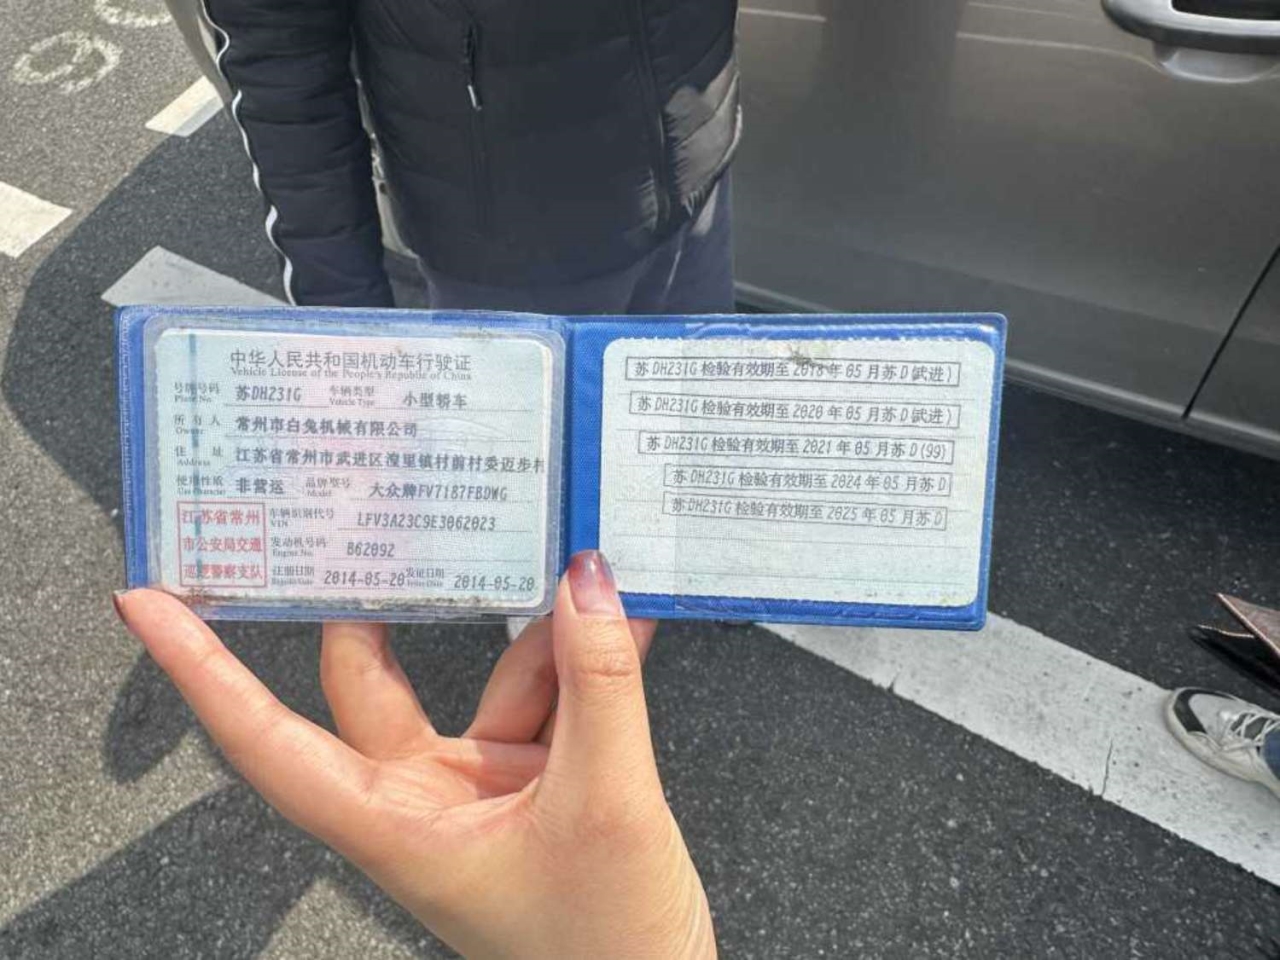 中华人民共和国机动车行驶证
Vehicle License of the People's Republic of China
号牌号码 苏DH231G 车辆类型 小型轿车
Plate No. Vehicle Type
所有人 常州市白兔机械有限公司
Owner
住址 江苏省常州市武进区湟里镇村前村委迈步村
Address
使用性质 非营运 品牌型号 大众牌FV7187FBDWG
Use Character Model
江苏省常州
市公安局交通
巡逻警察支队
车辆识别代号 LFV3A23C9E3062023
VIN
发动机号码 B62092
Engine No.
注册日期 2014-05-20 发证日期 2014-05-20
Register Date Issue Date
苏DH231G检验有效期至2018年05月苏D(武进)
苏DH231G检验有效期至2020年05月苏D(武进)
苏DH231G检验有效期至2021年05月苏D(99)
苏DH231G检验有效期至2024年05月苏D
苏DH231G检验有效期至2025年05月苏D